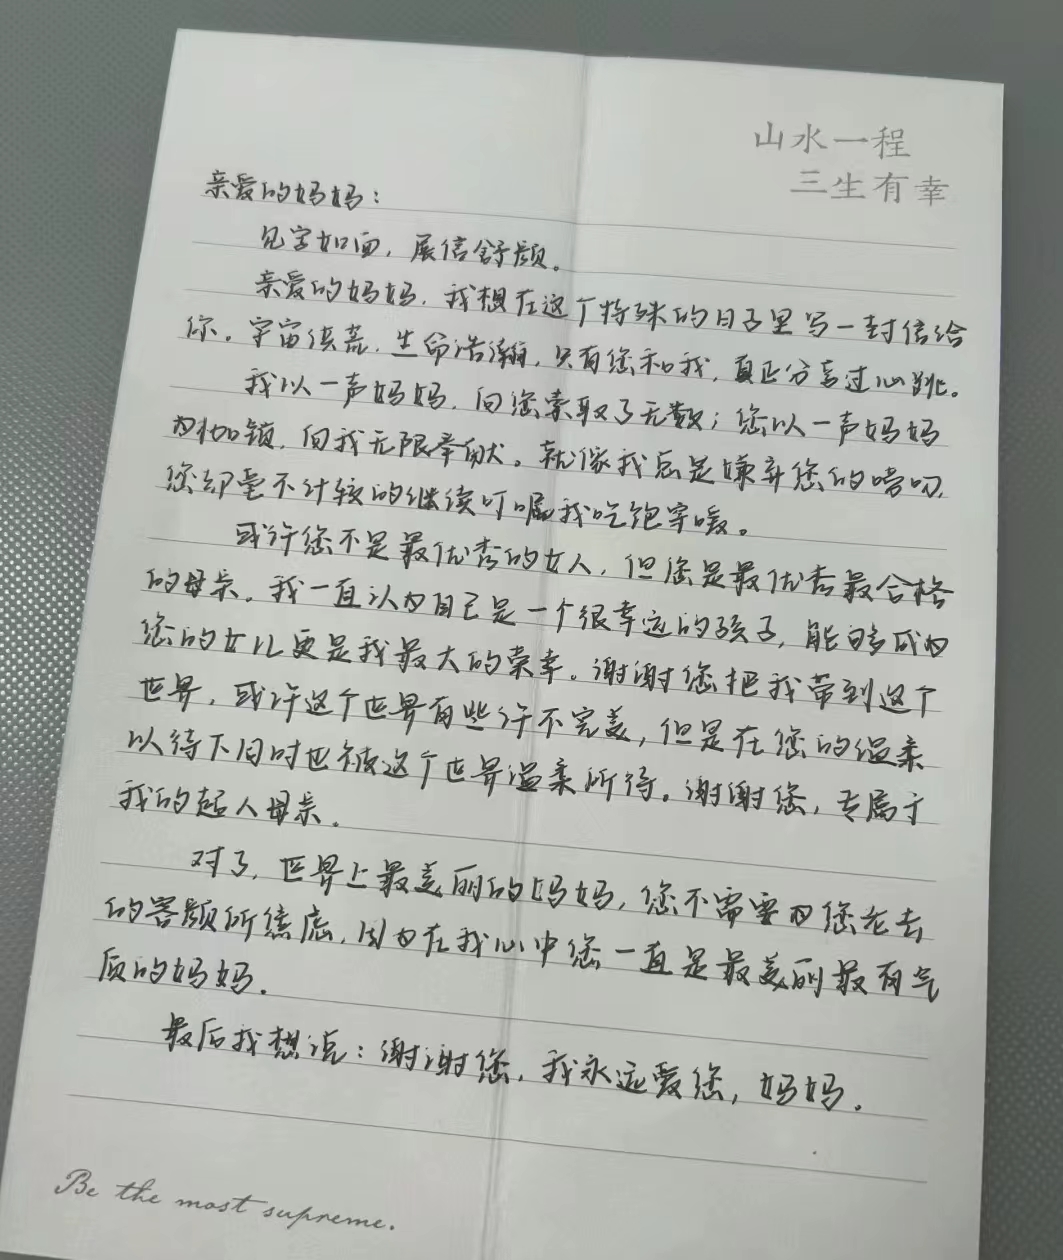 山水一程
三生有幸
亲爱的妈妈:
见字如面,展信舒颜。
亲爱的妈妈,我想在这个特殊的日子里写一封信给
你。宇宙洪荒,生命浩瀚,只有您和我,真正分享过心跳。
我以一声妈妈,向您索取了无数;您以一声妈妈
为枷锁,向我无限奉献。就像我总是嫌弃您的唠叨,
您却毫不计较的继续叮嘱我吃饱穿暖。
或许您不是最优秀的女人,但您是最优秀最合格
的母亲。我一直认为自己是一个很幸运的孩子,能够成为
您的女儿更是我最大的荣幸。谢谢您把我带到这个
世界,或许这个世界有些许不完美,但是在您的温柔
以待下同时也被这个世界温柔所待。谢谢您,专属于
我的超人母亲。
对了,世界上最美丽的妈妈,您不需要为您老去
的容颜所焦虑,因为在我心中您一直是最美丽最有气
质的妈妈。
最后我想说:谢谢您,我永远爱您,妈妈。
Be the most supreme.